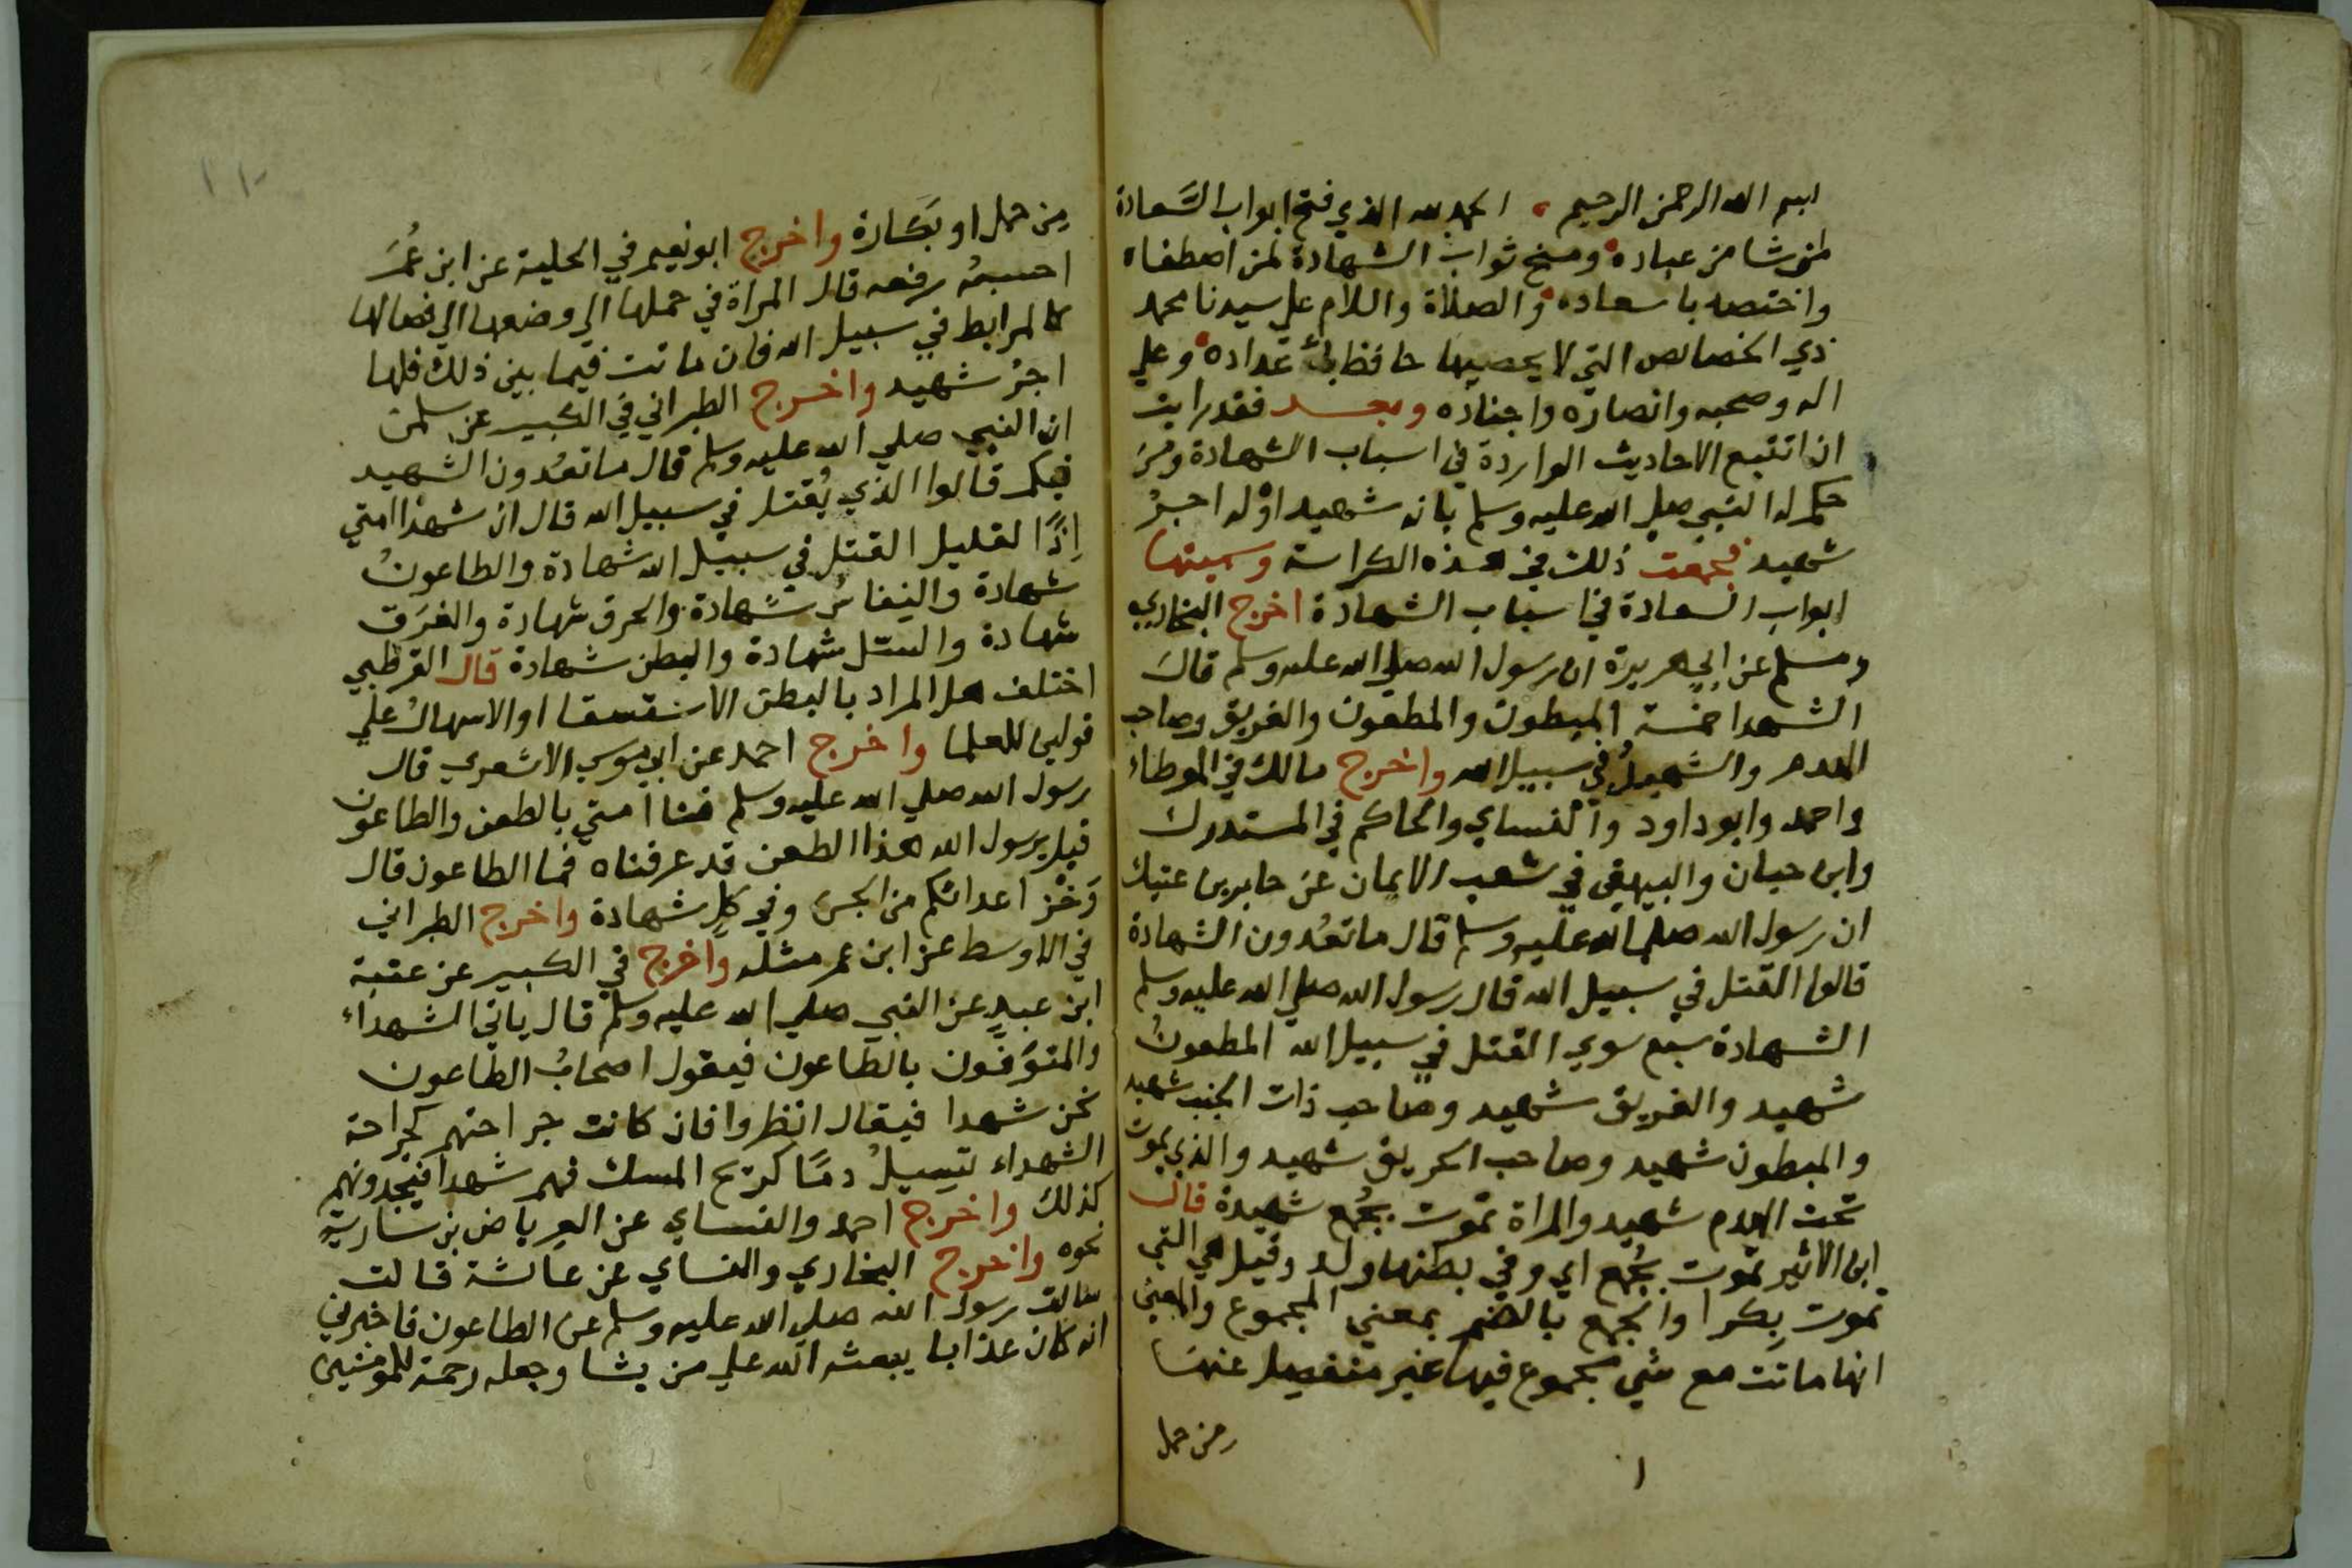 بسم الله الرحمن الرحيم الحمد لله الذي فتح ابواب السعادة
لمن شا من عباده ومنح ثواب الشهادة لمن اصطفاه
واختصه باسعاده والصلاة والسلام علي سيدنا محمد
ذي الخصائص التي لا يحصيها حافظ تعداده وعلي
اله وصحبه وانصاره واجناده وبعد فقد رايت
ان اتتبع الاحاديث الواردة في اسباب الشهادة ومن
حكم له النبي صلي الله عليه وسلم بانه شهيد اوله اجر
شهيد فجمعت ذلك في هذه الكراسة وسميتها
ابواب السعادة في اسباب الشهادة اخرج البخاري
ومسلم عن ابي هريرة ان رسول الله صلي الله عليه وسلم قال
الشهدا خمسة المبطون والمطعون والغريق وصاحب
الهدم والشهيد في سبيل الله واخرج مالك في الموطاء
واحمد وابو داود والنساي والحاكم في المستدرك
وابن حبان والبيهقي في شعب الايمان عن جابر بن عتيك
ان رسول الله صلي الله عليه وسلم قال ما تعُدون الشهادة
قالوا القتل في سبيل الله قال رسول الله صلي الله عليه وسلم
الشهادة سبع سوي القتل في سبيل الله المطعون
شهيد والغريق شهيد وصاحب ذات الجنب شهيد
والمبطون شهيد وصاحب الحريق شهيد والذي يموت
تحت الهدم شهيد والمراة تموت بجُمع شهيدة قال
ابن الاثير تموت بجُمع اي وفي بطنها ولد وقيل هي التي
تموت بِكرا والجمع بالضم بمعني المجموع والمعني
انها ماتت مع شي مجموع فيها غير منفصل عنها
من حمل
١
من حمل او بَكارة واخرج ابو نعيم في الحلية عن ابن عُمَر
احسبه رفعه قال المراة في حملها الي وضعها الي فصالها
كالمرابط في سبيل الله فان ماتت فيما بين ذلك فلها
اجرُ شهيد واخرج الطبراني في الكبير عن سلمن
ان النبي صلي الله عليه وسلم قال ما تعُدون الشهيد
فيكم قالوا الذي يُقتل في سبيل الله قال ان شهدا امتي
اِذًا لقليل القتل في سبيل الله شهادة والطاعونُ
شهادة والنِفاسُ شهادة والحرق شهادة والغرَق
شهادة والسل شهادة والبطن شهادة قال القرطبي
اختلف هل المراد بالبطن الاستسقا او الاسهالُ علي
قولين للعلما واخرج احمد عن ابي موسي الاشعري قال
رسول الله صلي الله عليه وسلم فنا امتي بالطعن والطاعون
قيل يرسول الله هذا الطعن قد عرفناه فما الطاعون قال
وَخْز اعدائكم من الجن وفي كلٍ شهادة واخرج الطبراني
في الاوسط عن ابن عمر مثله واخرج في الكبير عن عتبة
ابن عبدٍ عن النبي صلي الله عليه وسلم قال ياتي الشهداء
والمتوَفَّون بالطاعون فيقول اصحابُ الطاعون
نحن شهدا فيقال انظروا فان كانت جراحتهم كجراحة
الشهداء تسيلُ دمًا كريح المسك فهم شهدا فيجدونهم
كذلك واخرج احمد والنساي عن العرباض بن سارية
نحوه واخرج البخاري والنساي عن عائشة قالت
سالت رسول الله صلي الله عليه وسلم عن الطاعون فاخبرني
انه كان عذابا يبعثه الله علي من يشا وجعله رحمة للمومنين